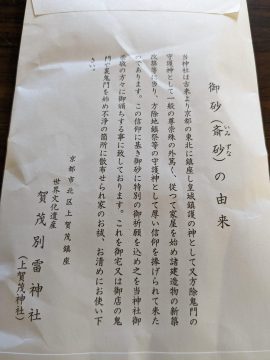 御砂(斎砂)の由来
いみ
ずな
当神社は古来より京都の東北に鎮座し皇城鎮護の神として又方除鬼門の
守護神として一般の尊崇殊の外篤く、従つて家屋を始め諸建造物の新築
改築等に当り、方除地鎮祭等の守護神として厚い信仰を捧げられて来た
のであります。この信仰に基き御砂に特別の御祈願を込め之を当神社御
参拝の方々に御頒ちする事に致しております。これを御宅又は御店の鬼
門や裏鬼門を始め不浄の箇所に散布せられ家のお祓、お清めにお使い下
さい。
京都市北区上賀茂鎮座
世界文化遺産
賀茂別雷神社
(上賀茂神社)